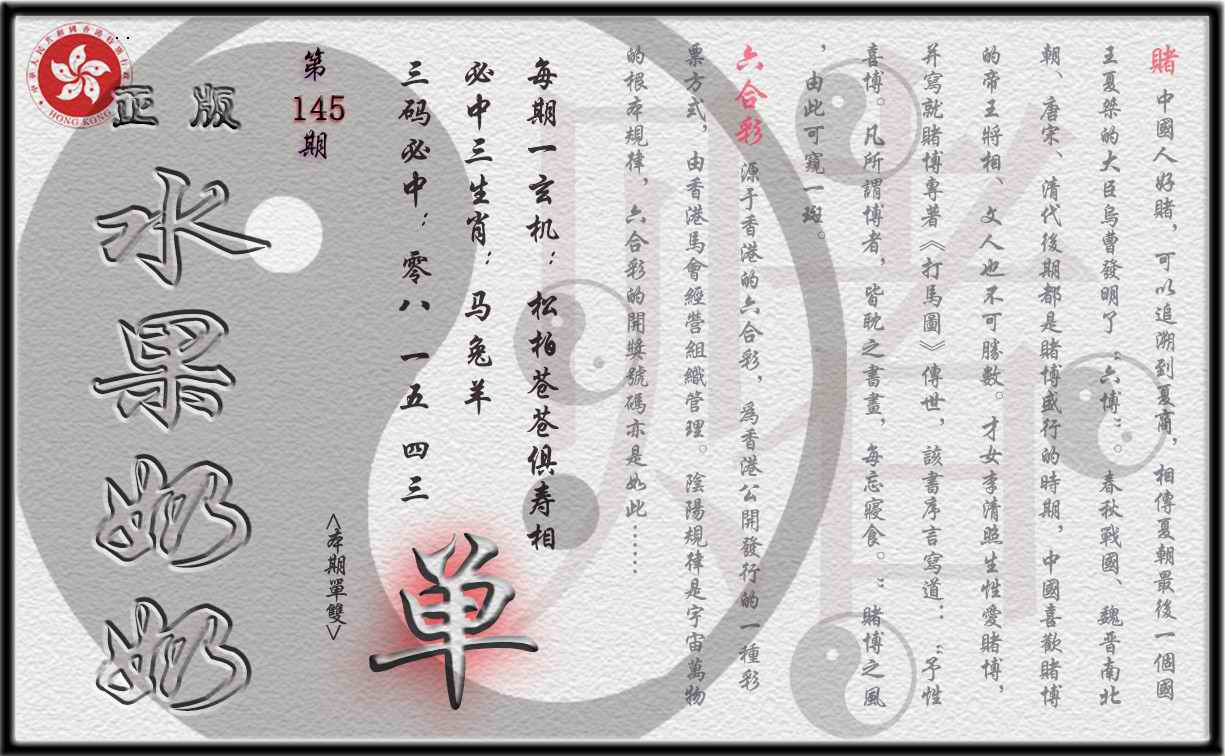 賭 中國人好賭，可以追溯到夏商，相傳夏朝最後一個國
王夏桀的大臣烏曹發明了“六博”。春秋戰國、魏晋南北
朝、唐宋、清代後期都是賭博盛行的時期，中國喜歡賭博
的帝王將相、文人也不可勝數。才女李清照生性愛賭博，
并寫就賭博專著《打馬圖》傳世，該書序言寫道：“予性
喜博。凡所謂博者，皆耽之書畫，每忘寢食。”賭博之風
，由此可窺一斑。
六合彩 源于香港的六合彩，為香港公開發行的一種彩
票方式，由香港馬會經營組織管理。陰陽規律是宇宙萬物
的根本規律，六合彩的開獎號碼亦是如此……
每期一玄机：松柏苍苍俱寿相
必中三生肖：马兔羊
三码必中：零八 一五 四三
单
<本期單雙>
第
145
期
正版
水果奶奶
中華人民共和國香港特別行政區
HONG KONG